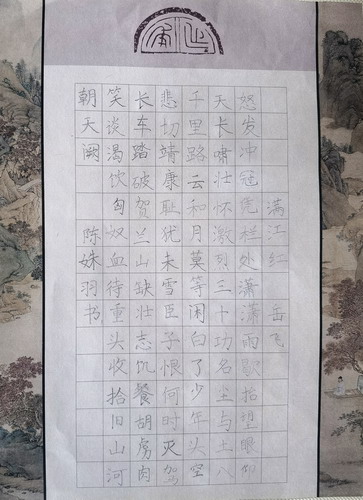 满江红 岳飞
怒发冲冠凭栏处潇潇雨歇抬望眼仰
天长啸壮怀激烈三十功名尘与土八
千里路云和月莫等闲白了少年头空
悲切靖康耻犹未雪臣子恨何时灭驾
长车踏破贺兰山缺壮志饥餐胡虏肉
笑谈渴饮匈奴血待重头收拾旧山河
朝天阙 陈姝羽书